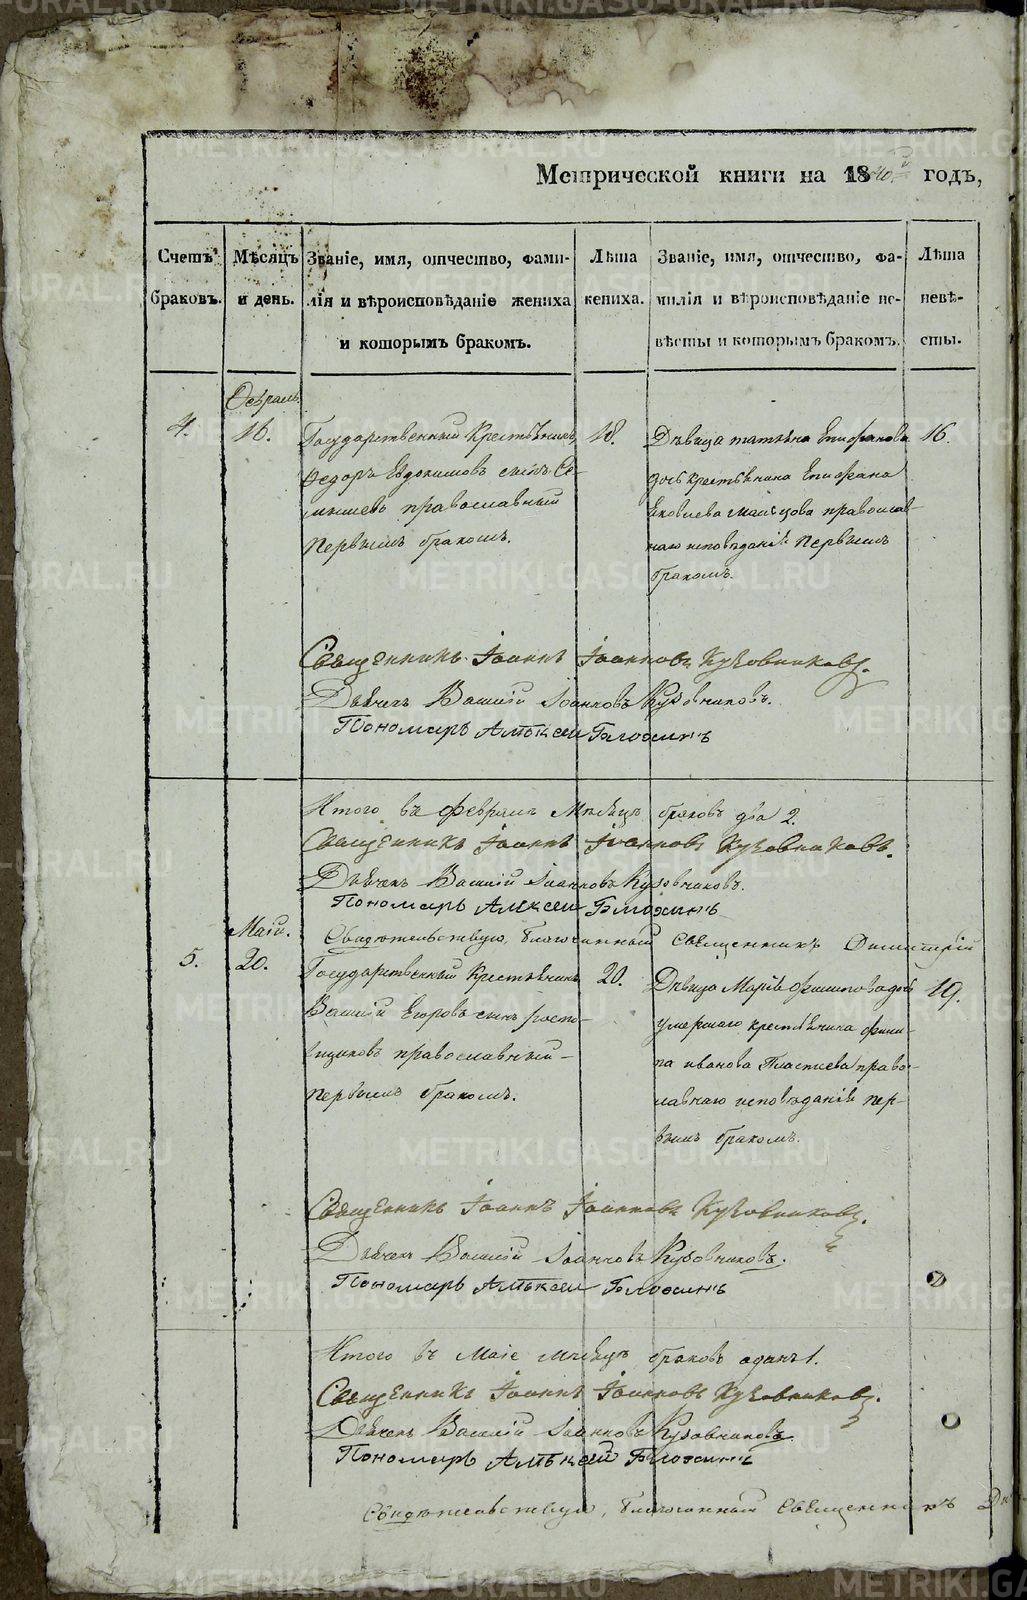 Метрической книги на 1840й годъ,
Счетъ браковъ.
Мѣсяцъ и день.
Званіе, имя, отчество, фами-
лія и вѣроисповѣданіе жениха
и которымъ бракомъ.
Лѣта жениха.
Званіе, имя, отчество, фа-
милія и вѣроисповѣданіе не-
вѣсты и которымъ бракомъ.
Лѣта невѣ-
сты.
Февраль.
4.
16.
Государственный Крестьянинъ
Федоръ Евдокимовъ сынъ
православный
первымъ бракомъ.
18.
Дѣвица татьяна Епифанова
дочь крестьянина Епифана
Яковлева православ-
наго исповѣданія первымъ
бракомъ.
16.
Священникъ Іоаннъ Іоанновъ Кузовниковъ.
Дьячекъ Василій Іоанновъ Кузовниковъ.
Пономарь Алѣксеи
Итого въ февралѣ Мѣсяцѣ браковъ два 2.
Священникъ Іоаннъ Іоанновъ Кузовниковъ.
Дьячекъ Василій Іоанновъ Кузовниковъ.
Пономарь Алексеи
Свидѣтельствую, благочинный священникъ Димитрій
Маій.
5.
20.
Государственный Крестьянинъ
Василій Егоровъ сынъ
православный
первымъ бракомъ.
20.
Дѣвица Марія Филипова дочь
умершаго крестьянина фили-
па иванова право-
славнаго исповѣданія пер-
вымъ бракомъ.
19.
Священникъ Іоаннъ Іоанновъ Кузовниковъ.
Дьячекъ Василій Іоанновъ Кузовниковъ.
Пономарь Алѣксеи
Итого въ Маіе мѣсяцѣ браковъ одинъ 1.
Священникъ Іоаннъ Іоанновъ Кузовниковъ.
Дьячекъ Василій Іоанновъ Кузовниковъ.
Пономарь Алѣксей
Свидѣтельствую, благочинный Священникъ
METRIKI.GASO-URAL.RU